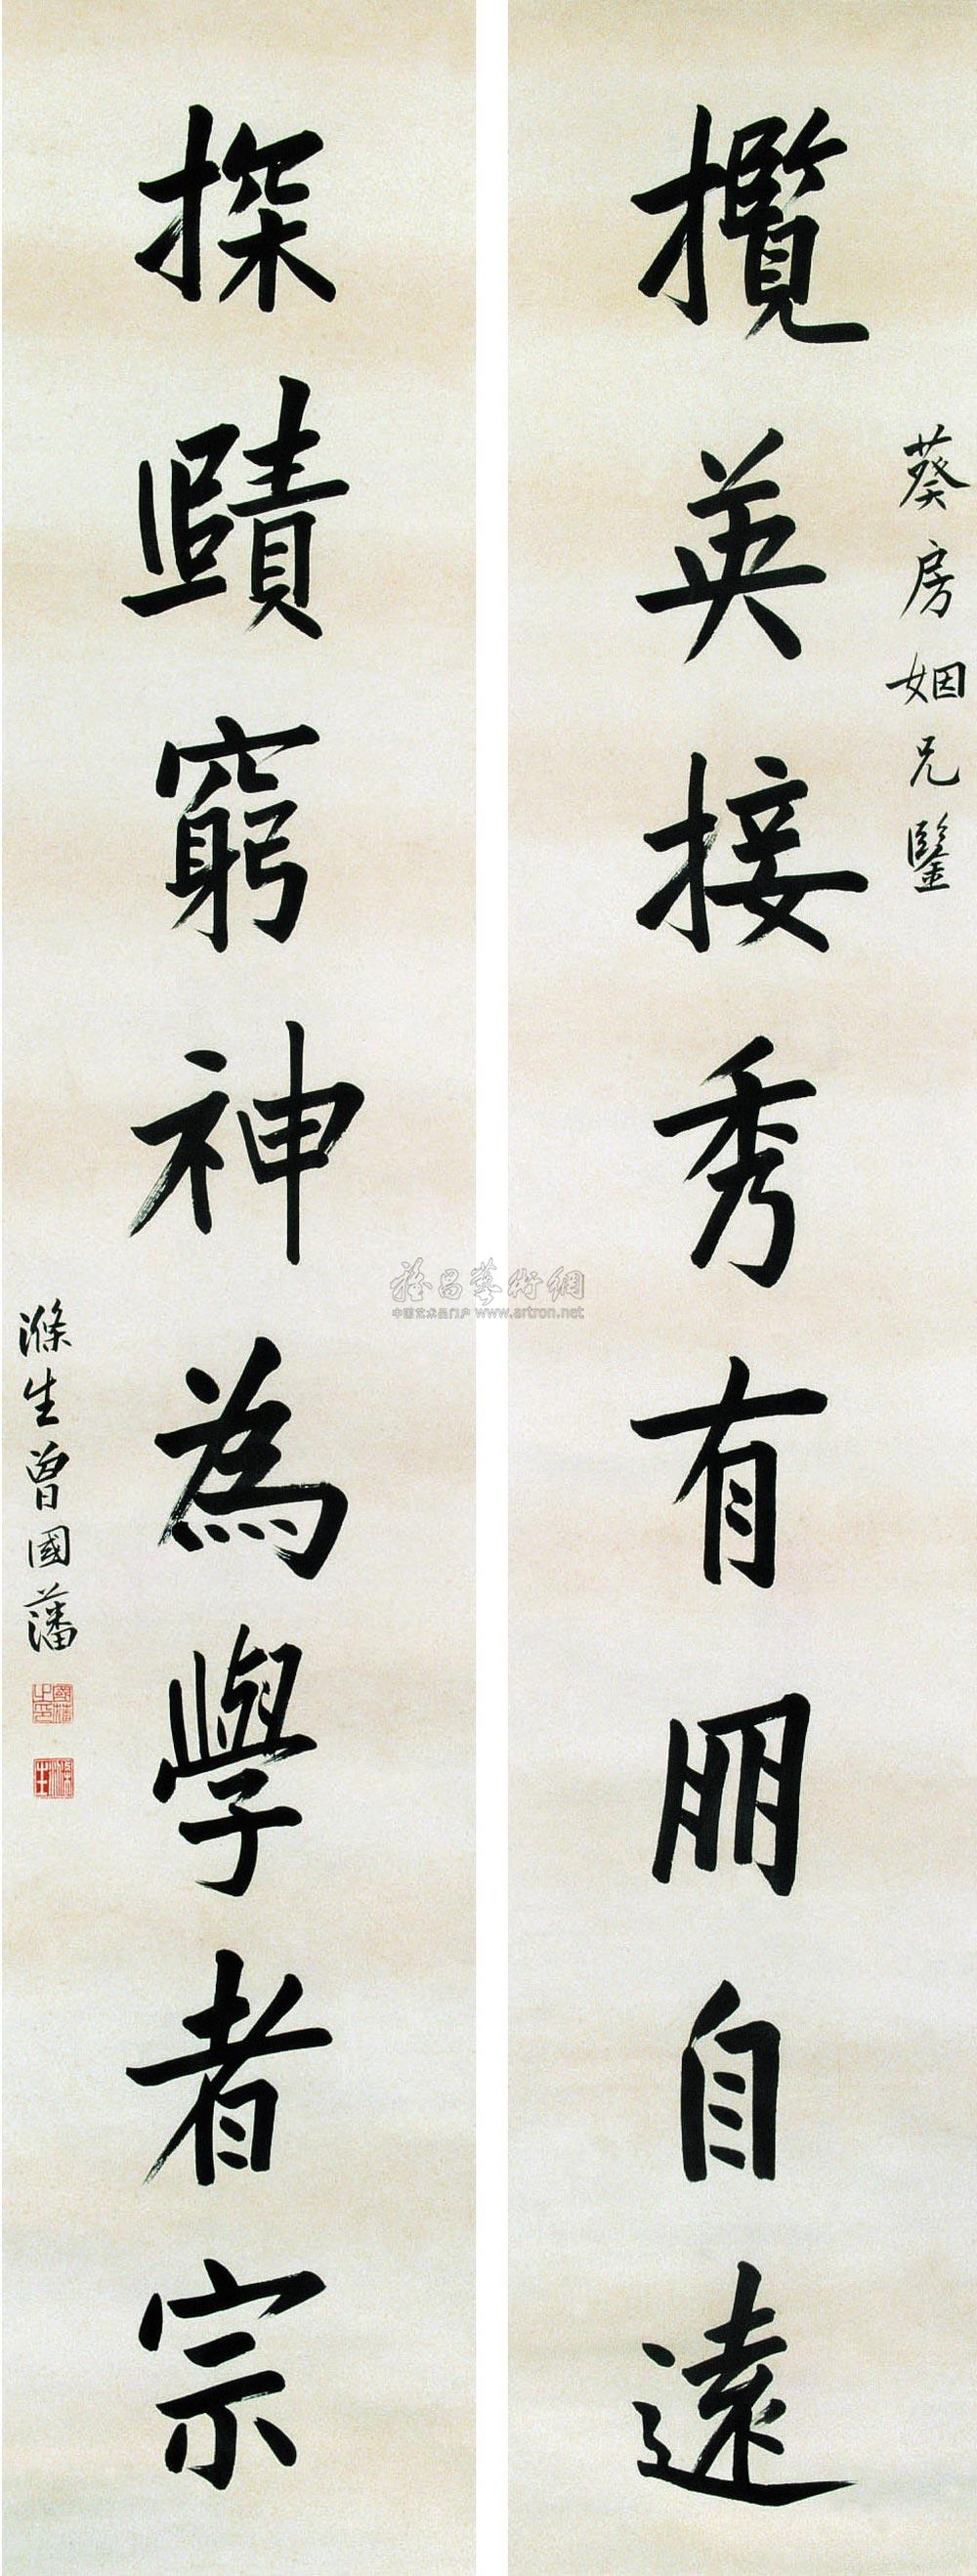 葵房姻兄鑒
攬英接秀有朋自遠
探賾窮神為學者宗
滌生曾國藩
國藩之印
滌生
雅昌藝術網
中国艺术品门户 www.artron.net